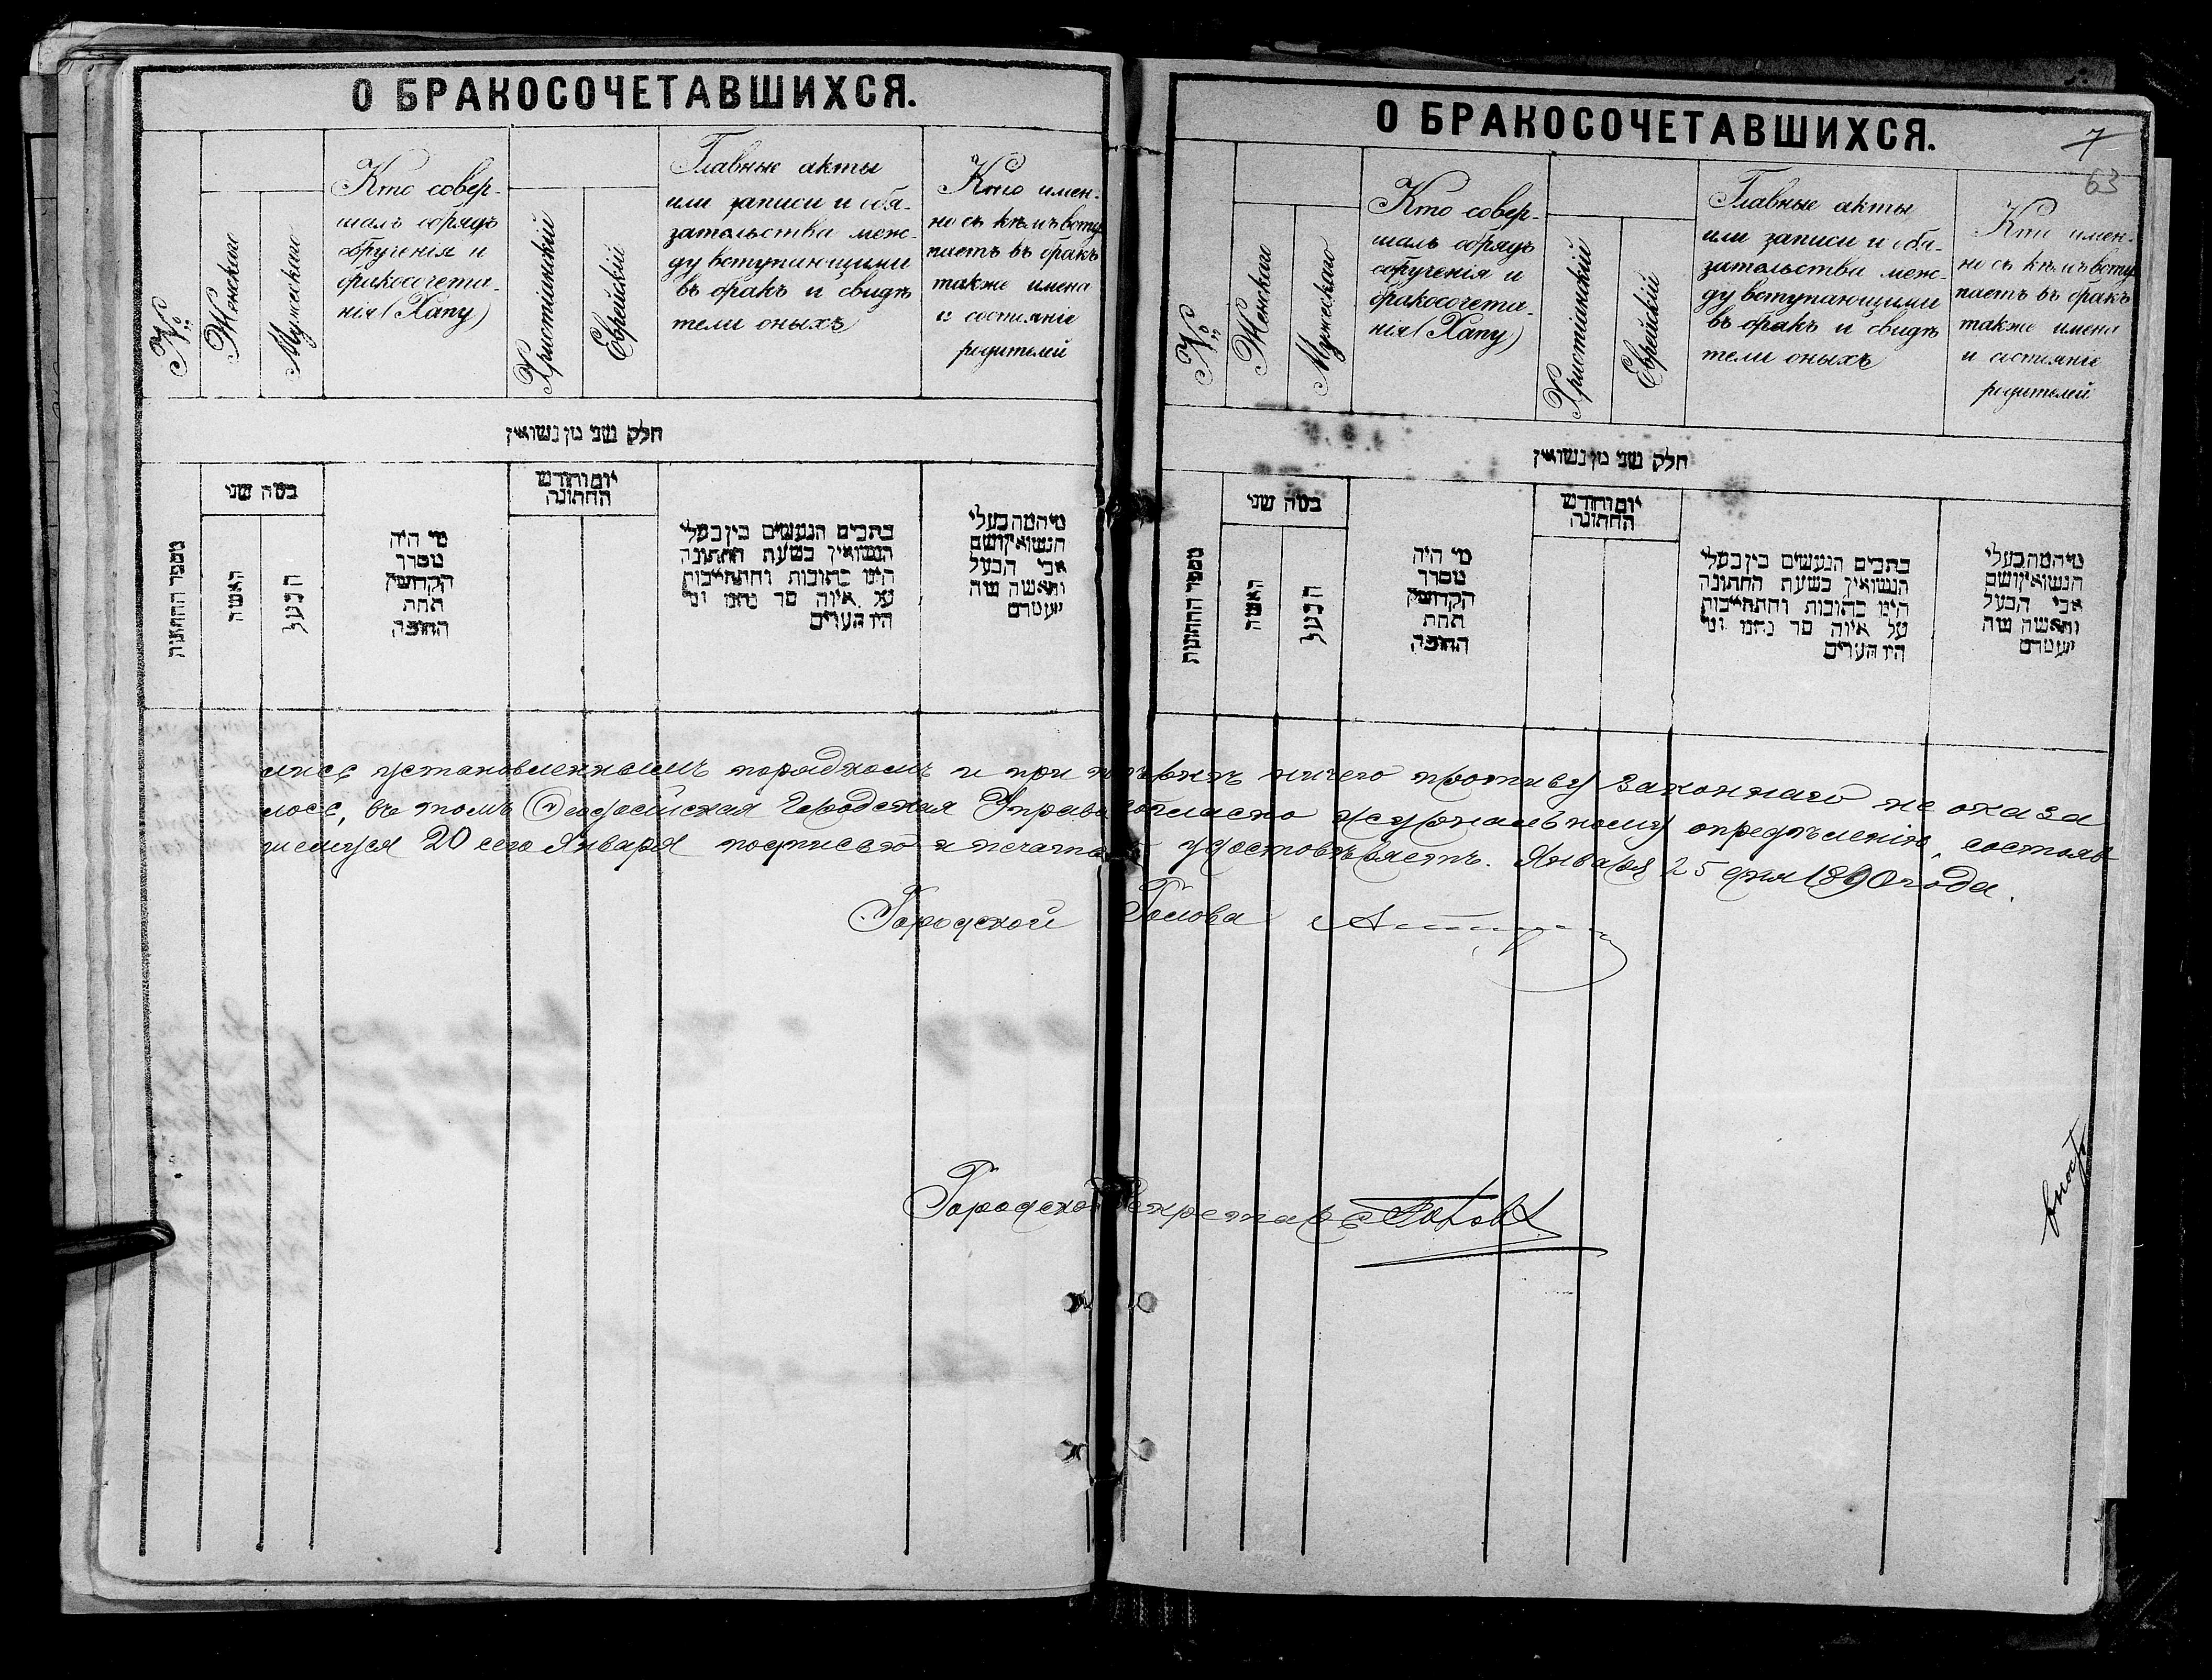 О БРАКОСОЧЕТАВШИХСЯ.
№
Женскаго
Мужескаго
Кто совер-
шалъ обрядъ
обрученія и
бракосочета-
нія (Хапу)
Христіанскій
Еврейскій
Главные акты
или записи и обя-
зательства меж-
ду вступающими
въ бракъ и свидѣ
тели оныхъ
Кто имен-
но съ кѣмъ всту
паетъ въ бракъ
также имена
и состояніе
родителей
חלק שני מן נשואין
מספר החתונות
כמה שני
האשה
הבעל
מי היה
מסדר
הקדושין
תחת
החופה
יום וחודש
החתונה
כתבים הנעשים בין בעלי
הנשואין בשעת החתונה
היינו כתובות והתחייבות
על איזה סך נתנו ומי
היו העדים
מי המה בעלי
הנשואין ושם
אבי הבעל
והאשה
О БРАКОСОЧЕТАВШИХСЯ.
7
63
№
Женскаго
Мужескаго
Кто совер-
шалъ обрядъ
обрученія и
бракосочета-
нія (Хапу)
Христіанскій
Еврейскій
Главные акты
или записи и обя-
зательства меж-
ду вступающими
въ бракъ и свидѣ
тели оныхъ
Кто имен-
но съ кѣмъ всту
паетъ въ бракъ
также имена
и состояніе
родителей
חלק שני מן נשואין
מספר החתונות
כמה שני
האשה
הבעל
מי היה
מסדר
הקדושין
תחת
החופה
יום וחודש
החתונה
כתבים הנעשים בין בעלי
הנשואין בשעת החתונה
היינו כתובות והתחייבות
על איזה סך נתנו ומי
היו העדים
מי המה בעלי
הנשואין ושם
אבי הבעל
והאשה
лись установленнымъ порядкомъ и при ничего противу законнаго не оказа
лось, въ томъ Ѳеодосійская Городская Управа согласно журнальному опредѣленію, состояв
шемуся 20 сего Января подписью и печатью удостовѣряетъ. Января 25 дня 1890 года.
Городской Голова
Городской Секретарь